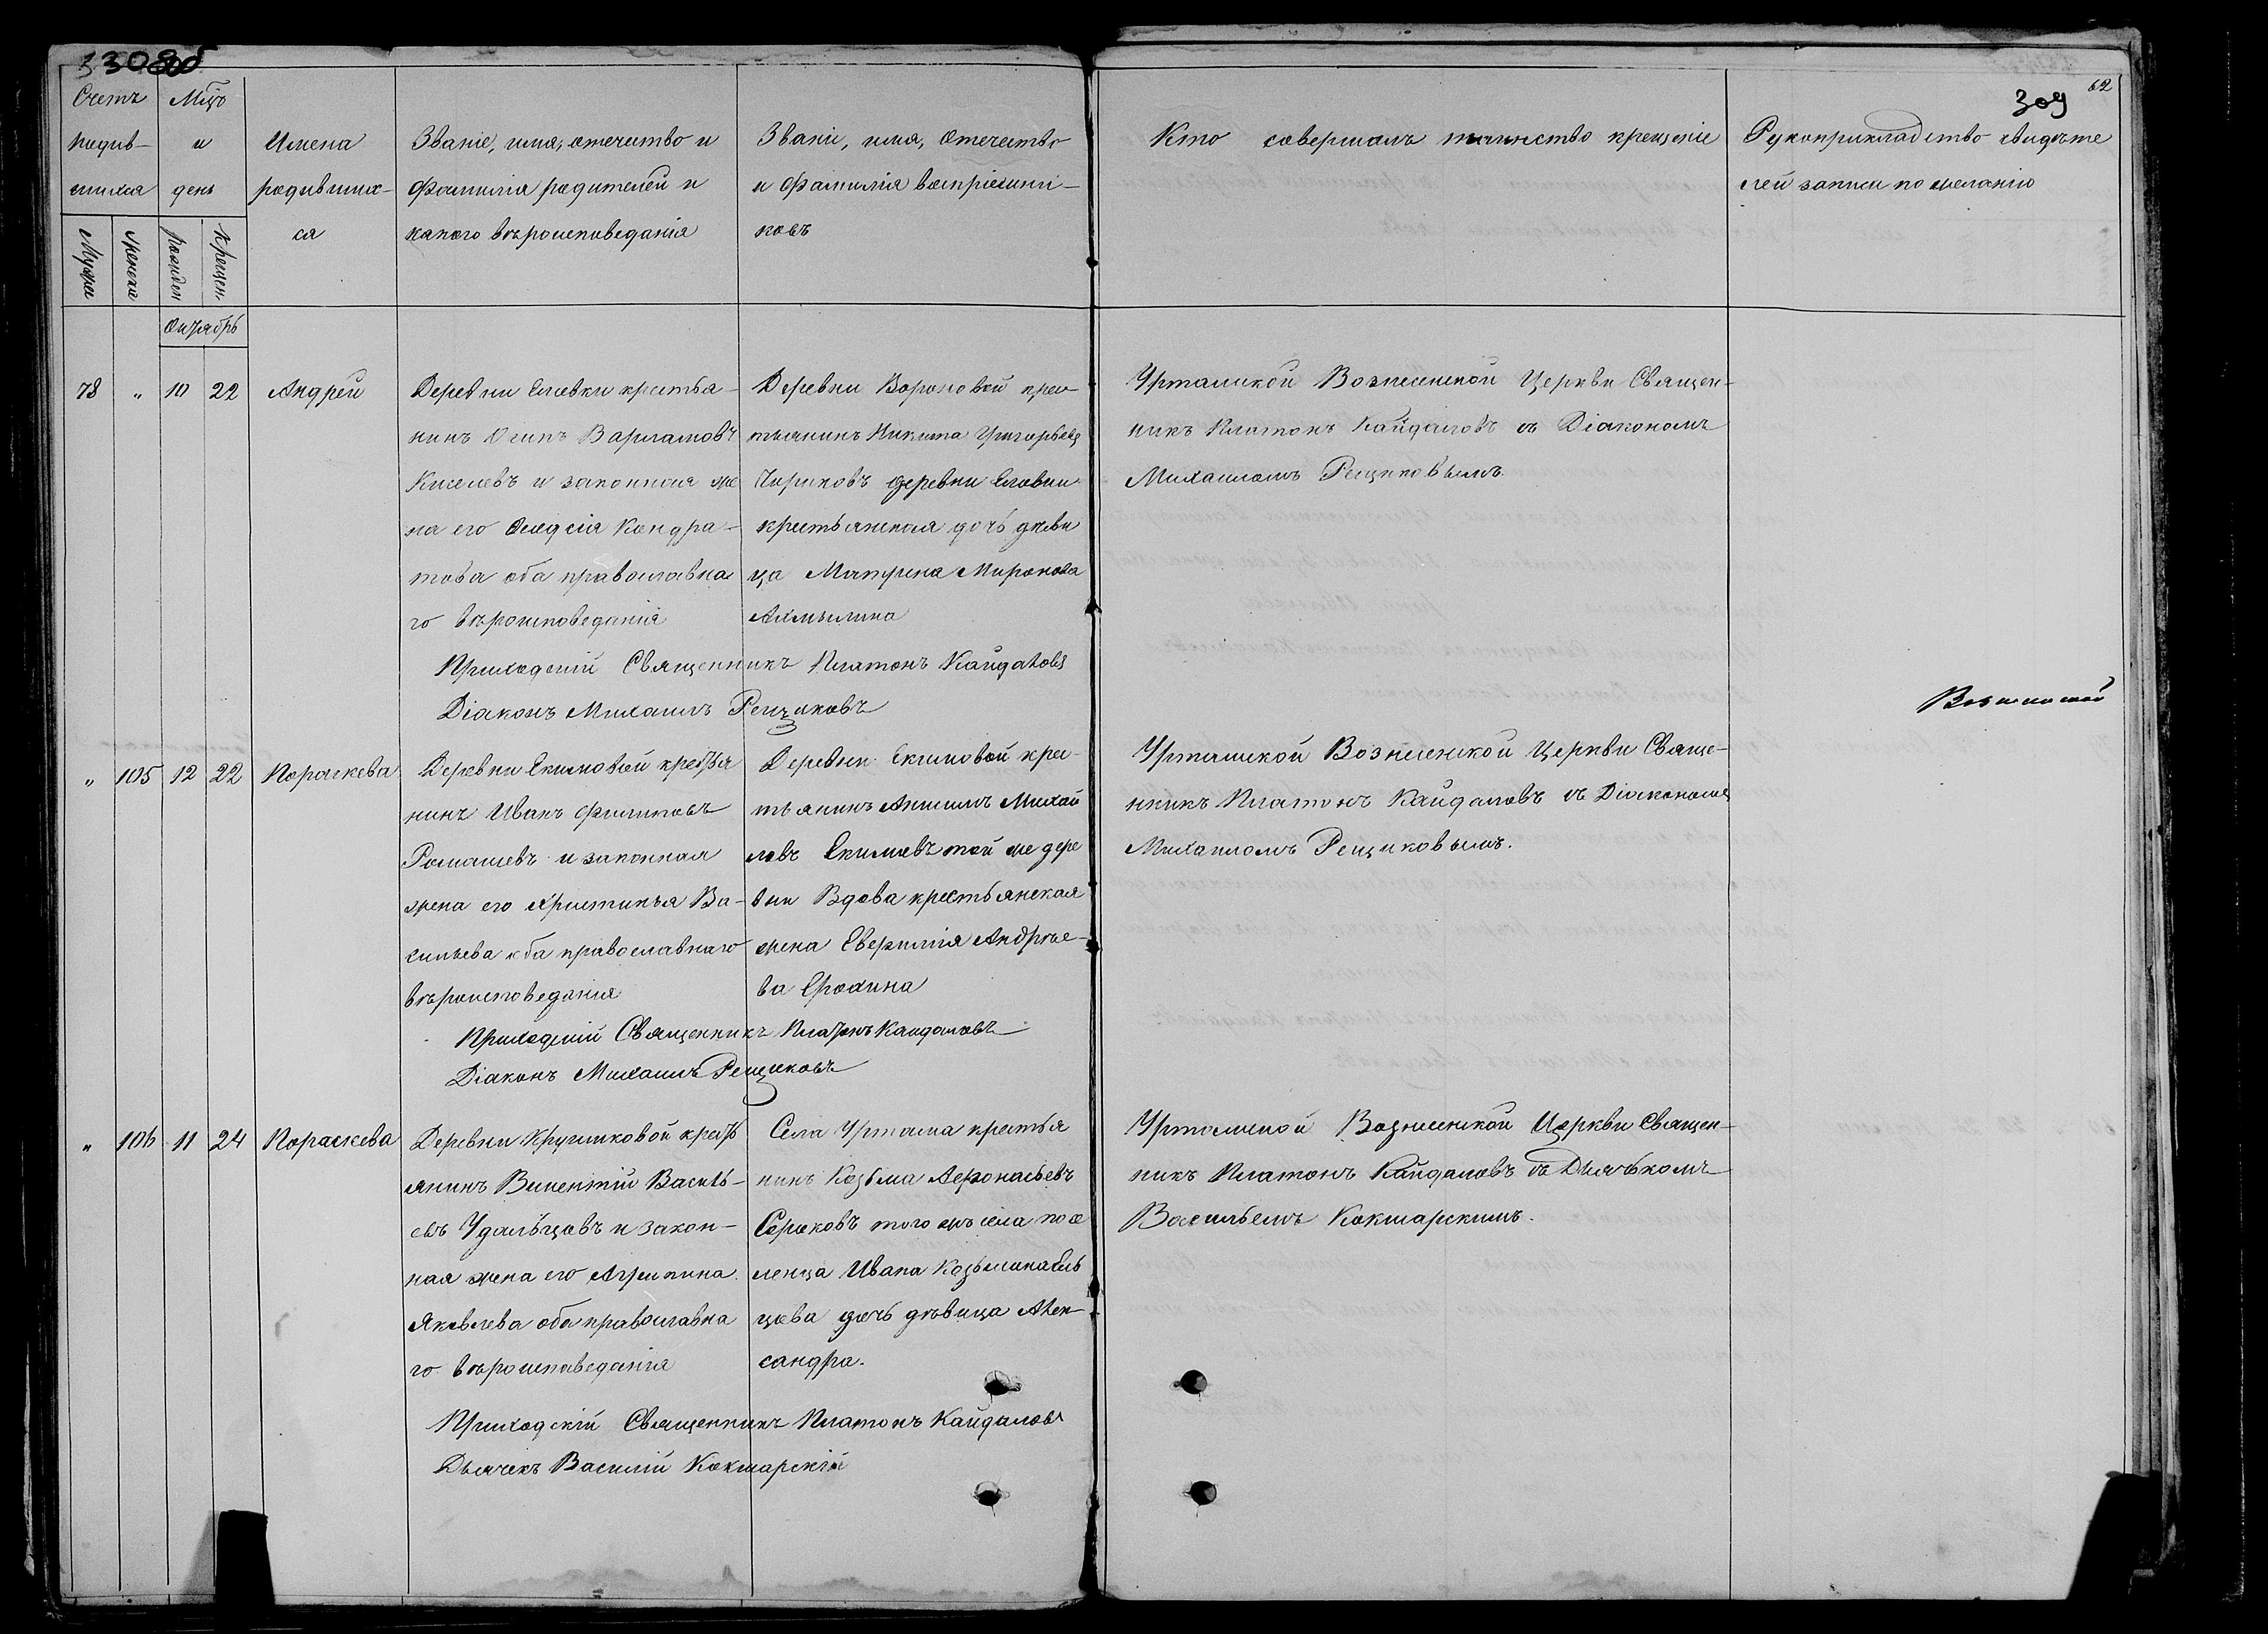 308об
309
62
Счетъ
родив-
шихся
Мцъ
и
день
Имена
родивших-
ся
Званіе, имя, отечество и
фамилія родителей и
какого вѣроисповѣданія
Званіе, имя, отечество
и фамилія воспріемни-
ковъ
Кто совершалъ таинство крещенія
Рукоприкладство свидѣте
лей записи по желанію
Мужеск
Женска
рожден
Крещен.
Октябрь
78 „ 10 22 Андрей
Деревни Елевки крестья-
нинъ Осипъ Варламовъ
Киселевъ и законная же
на его Кондра-
това оба православна
го вѣроисповеданія
Деревни Вороновой крес-
тьянинъ Никита Григорьевъ
Чириковъ деревни Еловки
крестьянская дочь дѣви
ца Матрена Миронова
Урталиской Вознесенской Церкви Священ-
никъ Платонъ Кайдаловъ съ Діакономъ
Михаиломъ Рещиковымъ.
Приходскій Священникъ Платонъ Кайдаловъ
Діаконъ Михаилъ Рещиковъ
Вознесенской
„ 105 12 22 Пораскева
Деревни Екимовой крестья
нинъ Иванъ Филиповъ
Ромашевъ и законная
жена его Христинья Ва-
сильева оба православнаго
вѣроисповеданія
Деревни Екимовой крес-
тьянинъ Анисимъ Михай
ловъ Екимовъ той же дере
вни Вдова крестьянская
жена Андрѣе-
ва Ерохина
Уртамской Вознесенской Церкви Свяще-
нникъ Платонъ Кайдаловъ съ Діакономъ
Михаиломъ Рещиковымъ.
Приходскій Священникъ Платонъ Кайдаловъ
Діаконъ Михаилъ Рещиковъ
„ 106 11 24 Пораскева
Деревни Кругликовой кресть
янинъ Викентій Василь-
евъ Удальцовъ и закон-
ная жена его Агрипина
Яковлева оба православна
го вѣроисповеданія
Села Уртама крестья
нинъ Козьма Афонасьевъ
Сороковъ того жъ села посе
ленца Ивана
цова дочь дѣвица Алек-
сандра.
Уртамской Вознесенской Церкви Священ-
никъ Платонъ Кайдаловъ съ Дьячькомъ
Васильемъ Кокшарскимъ.
Приходскій Священникъ Платонъ Кайдаловъ
Дьячекъ Василій Кокшарскій